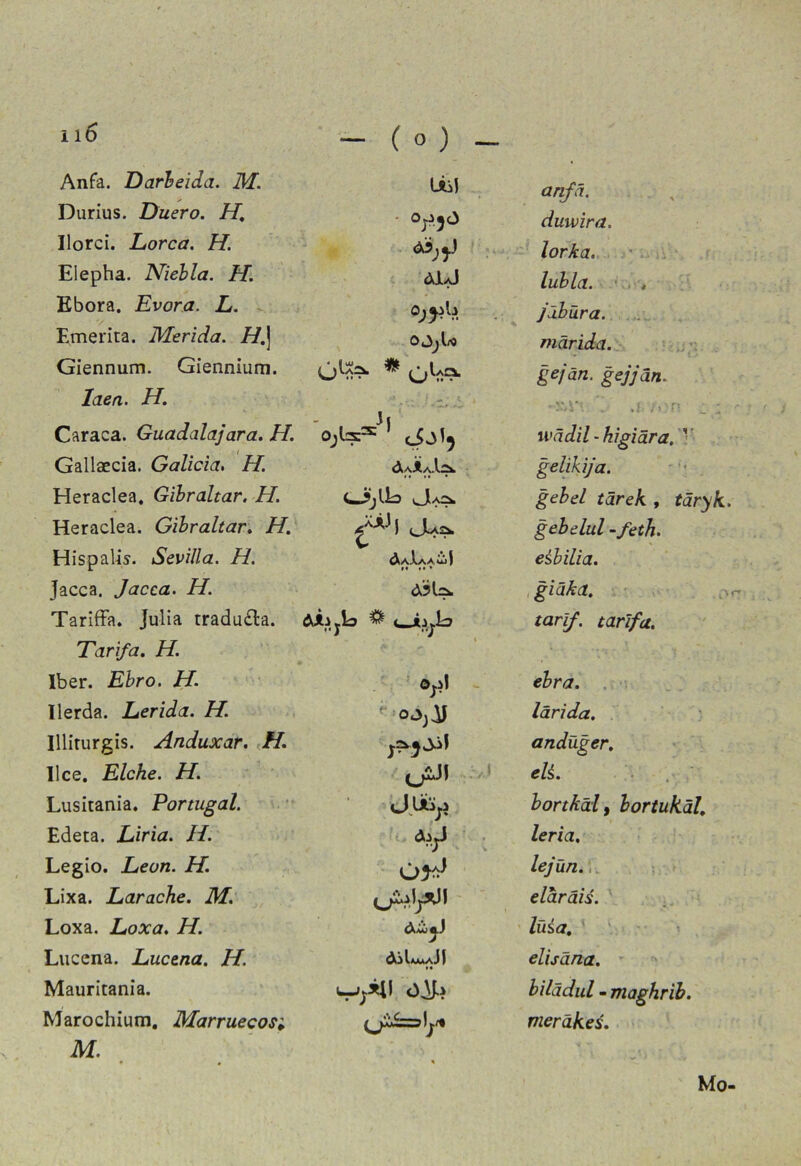 116 — ( o ) —
Anfa. Darbeida. M. انفا anfā.
Durius. Duero. H. دويره duwira.
Ilorci. Lorca. H. لورقة lorka.
Elepha. Niebla. H. لبلة lubla.
Ebora. Evora. L. يابوره jābūra.
Emerita. Merida. H.] مارده mārida.
Giennum. Giennium. جيان * جيان gejān. gejjān.
Iaen. H.
Caraca. Guadalajara. H. وادى الحجاره wādil-higiāra.
Gallæcia. Galicia. H. جليقية gelikija.
Heraclea. Gibraltar. H. جبل طارق gebel tārek, tāryk.
Heraclea. Gibraltar. H. جبل الفتح gebelul-feth.
Hispalis. Sevilla. H. اشبيلية eśbilia.
Jacca. Jacca. H. جاقة giāka.
Tariffa. Julia traducta. طريف * طريفة tarīf. tarīfa.
Tarifa. H.
Iber. Ebro. H. ابره ebra.
Ilerda. Lerida. H. لارده lārida.
Illiturgis. Anduxar. H. اندوجر andūger.
Ilce. Elche. H. الش elś.
Lusitania. Portugal. برتقال bortkāl, bortukāl.
Edeta. Liria. H. لرية leria.
Legio. Leon. H. ليون lejūn.
Lixa. Larache. M. العرايش elārāiś.
Loxa. Loxa. H. لوشة lūśa.
Lucena. Lucena. H. اليسانة elisāna.
Mauritania. بلاد المغرب bilādul-maghrib.
Marochium. Marruecos; مراكش merākeś.
M.
Mo-